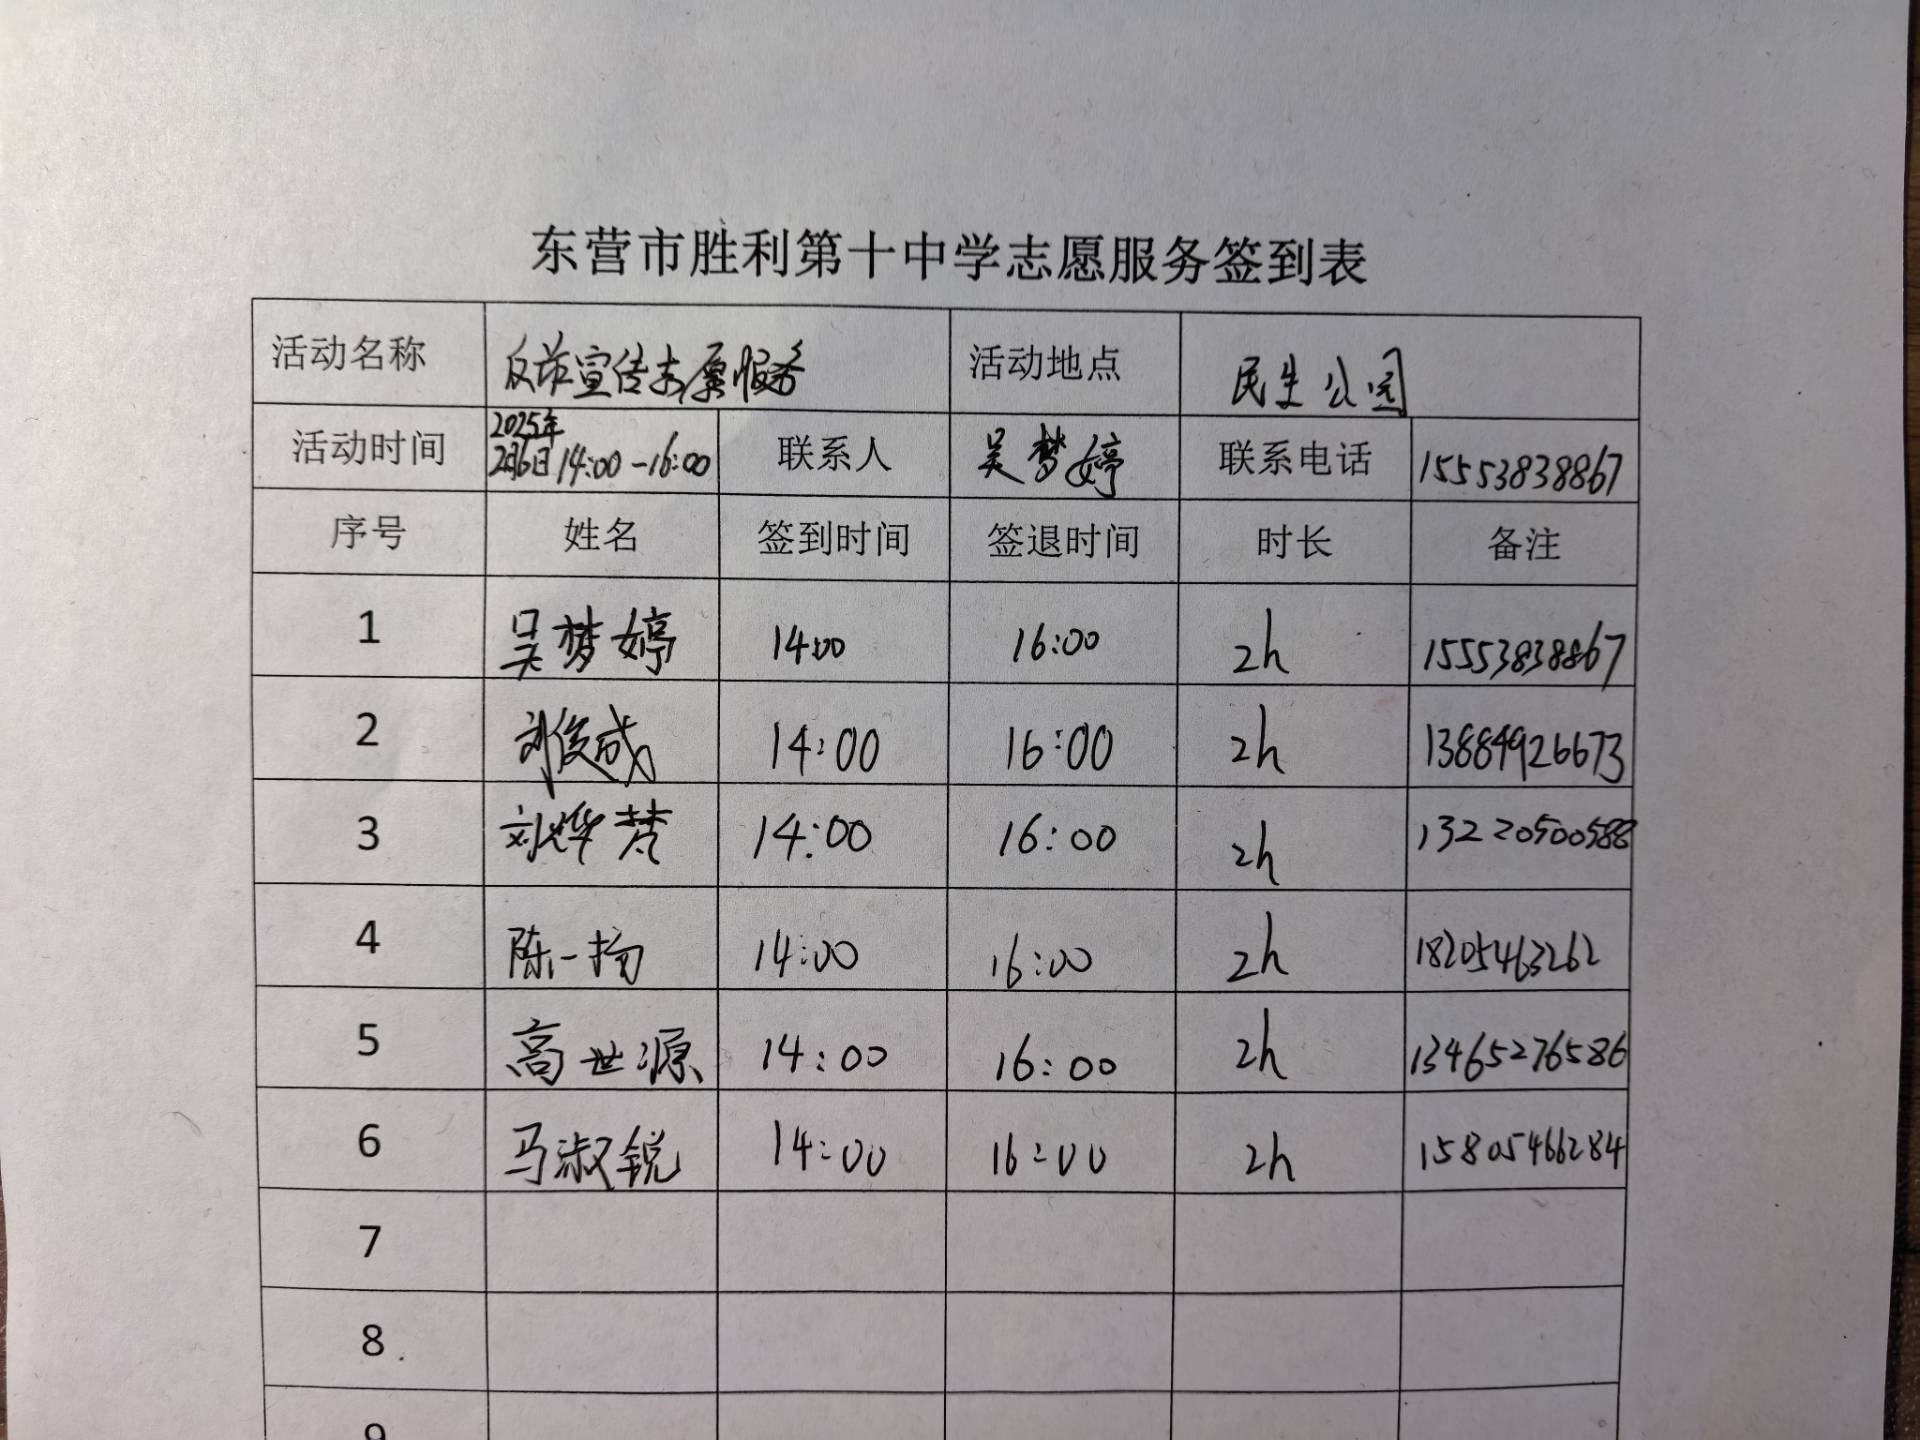 东营市胜利第十中学志愿服务签到表
活动名称 反诈宣传志愿服务 活动地点 民生公园
活动时间 2025年2月6日14:00-16:00 联系人 吴梦婷 联系电话 15553838867
序号 姓名 签到时间 签退时间 时长 备注
1 吴梦婷 14:00 16:00 2h 15553838867
2 刘俊成 14:00 16:00 2h 13884926673
3 刘烨 14:00 16:00 2h 13220500588
4 陈一扬 14:00 16:00 2h 18205463262
5 高世源 14:00 16:00 2h 13465276586
6 马淑锐 14:00 16:00 2h 15805466284
7
8
9